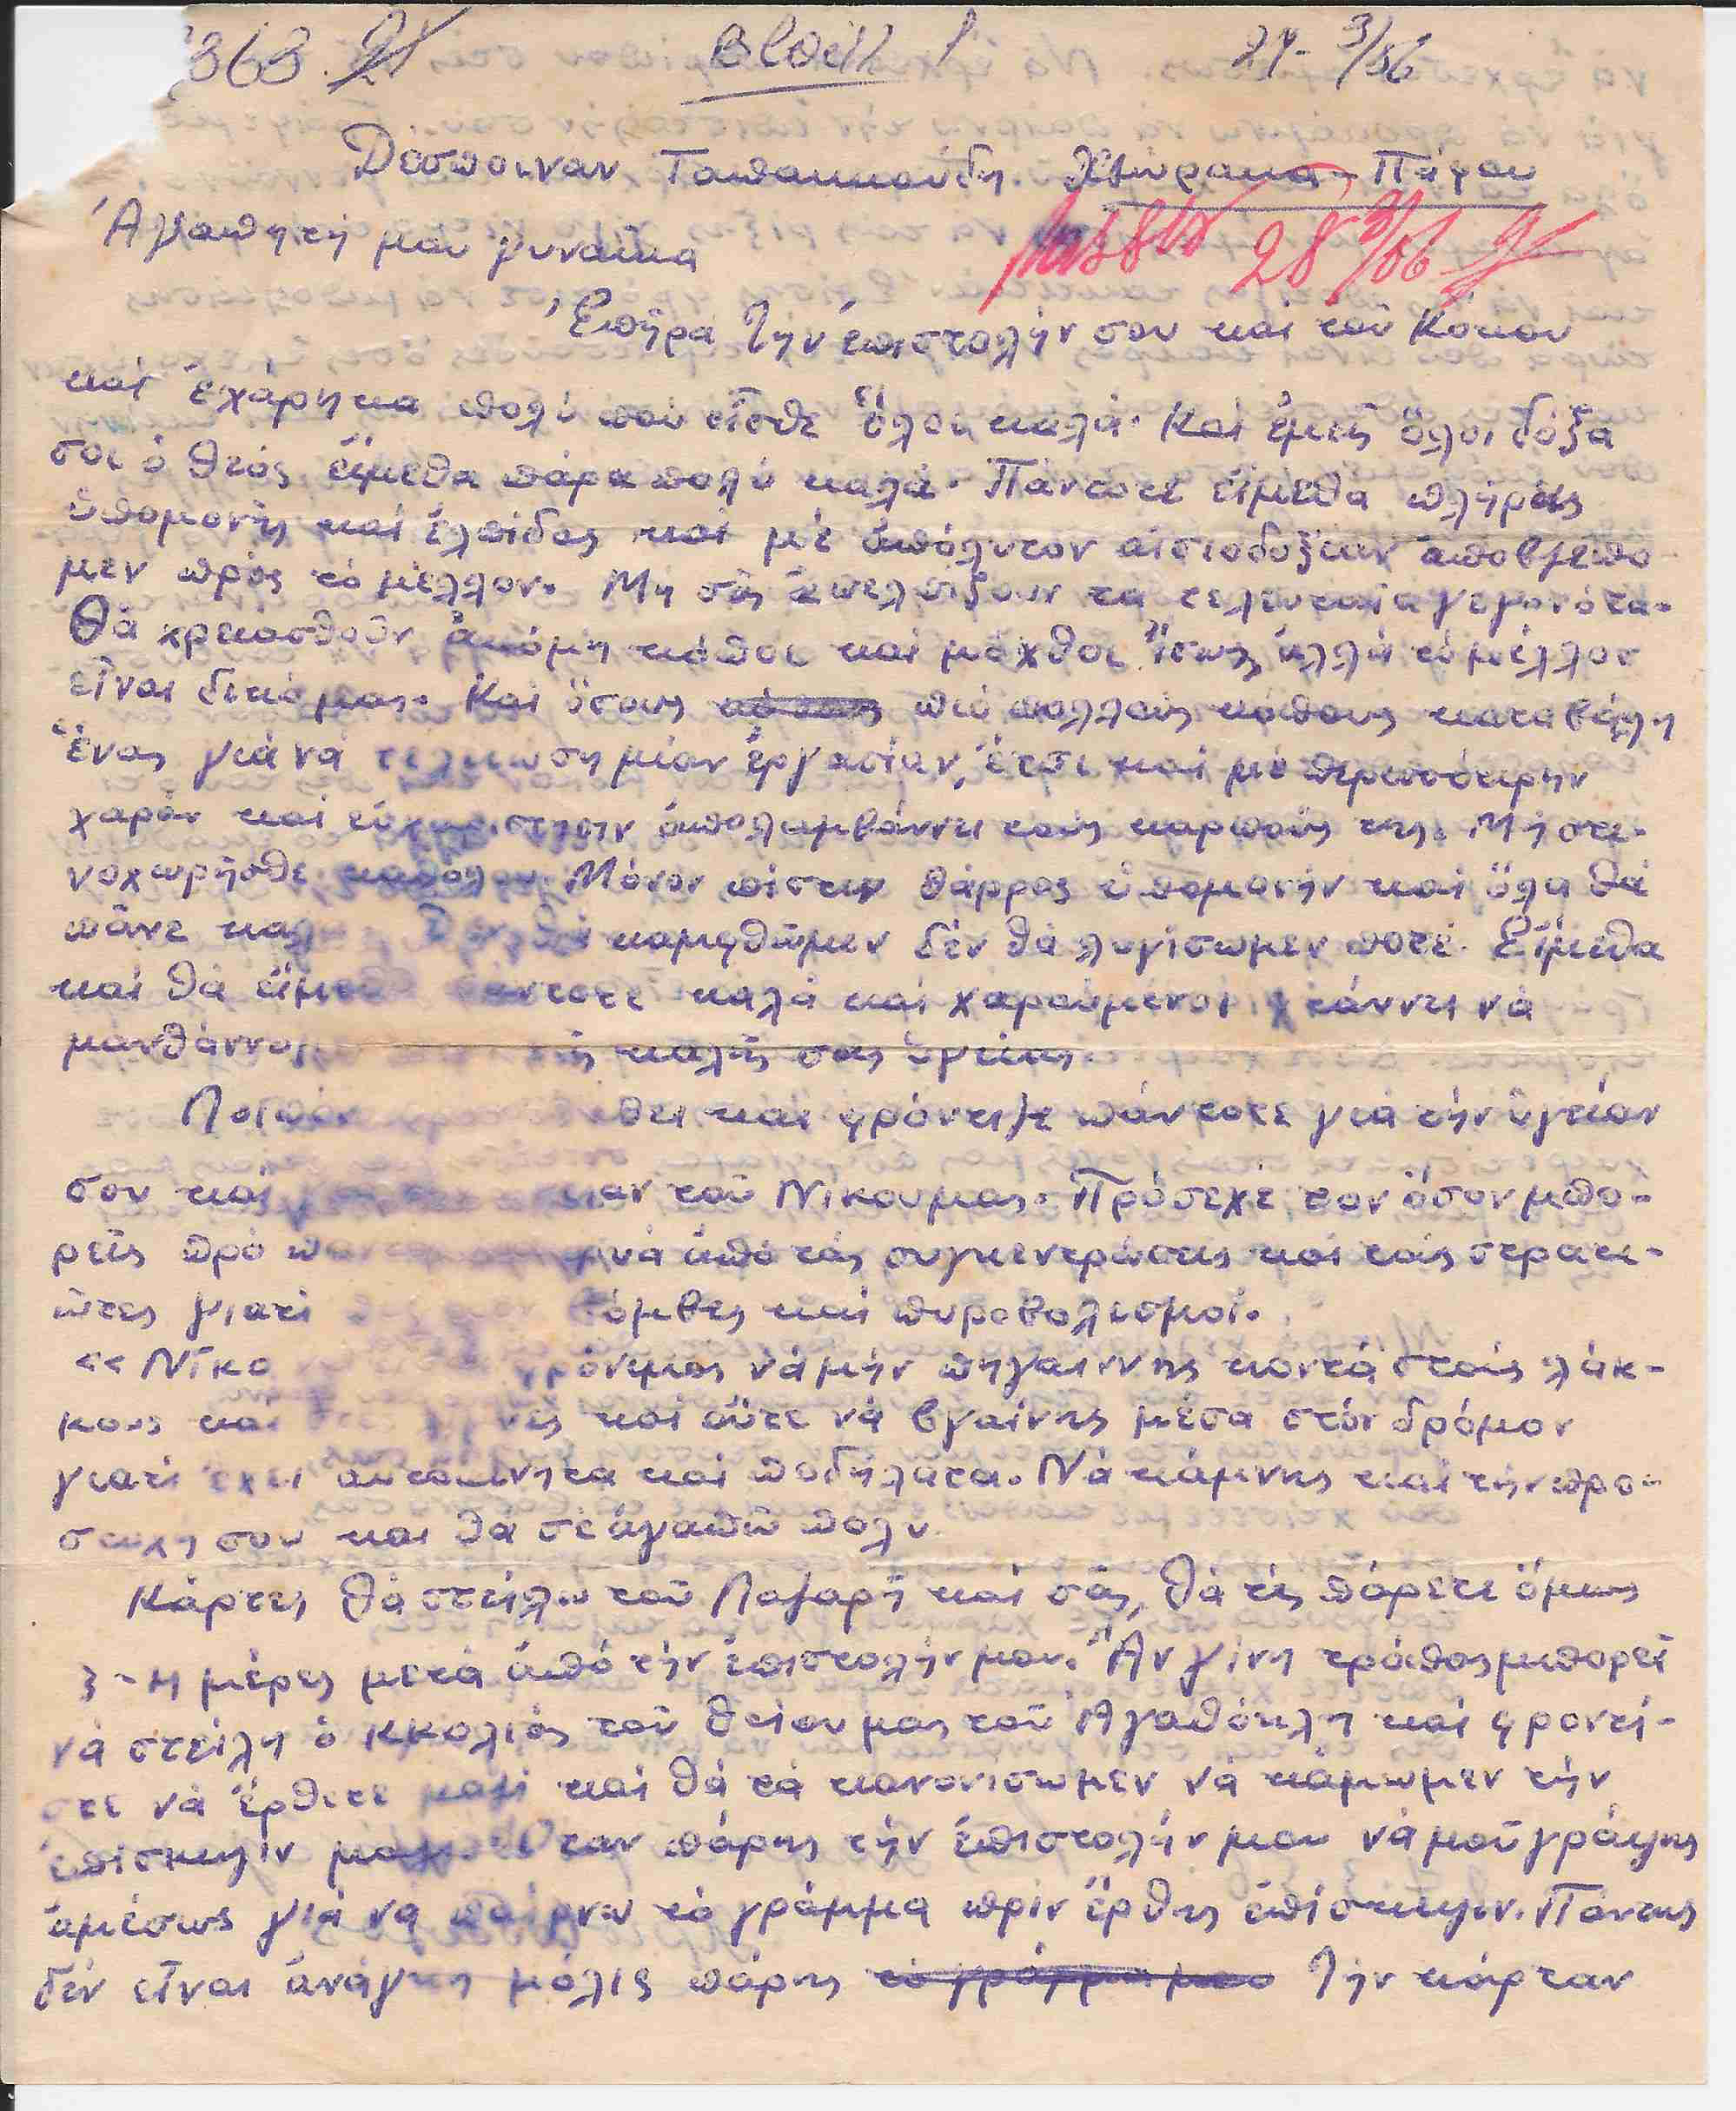 363
Block 1
27- 3/56
Δέσποιναν Ταπακκούδη. Χλώρακα - Πάφου
Passed 28 3/56
Ἀγαπητή μου γυναίκα
Ἐπῆρα τήν ἐπιστολήν σου καί τοῦ Κόκου
καί ἐχάρηκα πολύ πού εἶσθε ὅλοι καλά. Καί ἐμεῖς ὅλοι δόξα
σοι ὁ θεός εἴμεθα πάρα πολύ καλά. Πάντοτε εἴμεθα πλήρεις
ὑπομονῆς καί ἐλπίδος καί μέ ἀπόλυτον αἰσιοδοξίαν ἀποβλέπο
μεν πρός τό μέλλον. Μή σᾶς ἀπελπίζουν τά τελευταῖα γεγονότα.
Θά χρειασθοῦν ἀκόμη κόποι καί μόχθοι ἴσως ἀλλά τό μέλλον
εἶναι δικό μας. Καί ὅσους κόπους πιό πολλούς κόπους καταβάλη
ἕνας γιά νά τελειώση μίαν ἐργασίαν, ἔτσι καί μέ περισσότερην
χαράν καί εὐχαρίστησιν ἀπολαμβάννει τούς καρπούς της. Μή στε-
νοχωρῆσθε καθόλου. Μόνον πίστιν θάρρος ὑπομονήν καί ὅλα θά
πᾶνε καλ καμφθῶμεν δέν θά λυγίσωμεν ποτέ. Εἴμεθα
καί θά εἴμεθα πάντοτε καλά καί χαρούμενοι φτάννει νά
μανθάννου ς καλῆς σας ὑγείας.
Λοιπόν θει καί φρόντιζε πάντοτε γιά τήν ὑγείαν
σου καί αν τοῦ Νίκου μας. Πρόσεχέ τον ὅσον μπο-
ρεῖς πρό νά ἀπό τάς συγκεντρώσεις καί τούς στρατι-
ῶτες γιατί όμβες καί πυροβολισμοί.
<< Νῖκο φρόνιμος νά μήν πηγαίννης κοντά στούς λάκ-
κους καί νές καί οὔτε νά βγαίνης μέσα στόν δρόμον
γιατί ἔχει αὐτοκίνητα καί ποδήλατα. Νά κάμνης καί τήν προ-
σευχή σου και θά σέ ἀγαπῶ πολύ.
Κάρτες θά στείλω τοῦ Λαζαρῆ καί σᾶς, θά τές πάρετε ὅμως
3-4 μέρες μετά ἀπό τήν ἐπιστολήν μου. Ἄν γίνη τρόπος μπορεῖ
νά στείλη ὁ Κκολιός τοῦ θείου μας τοῦ Ἀγαθόκλη καί φροντί-
στε νά ἔρθετε μαζί καί θά τά κανονίσωμεν νά κάμωμεν τήν
ἐπίσκεψιν μαζί. Ὅταν πάρης τήν ἐπιστολήν μου νά μοῦ γράψης
ἀμέσως γιά νά παίρνω τό γράμμα πρίν ἔρθης ἐπίσκεψιν. Πάντως
δέν εἶναι ἀνάγκη μόλις πάρης τό γράμμα μου τήν κάρταν